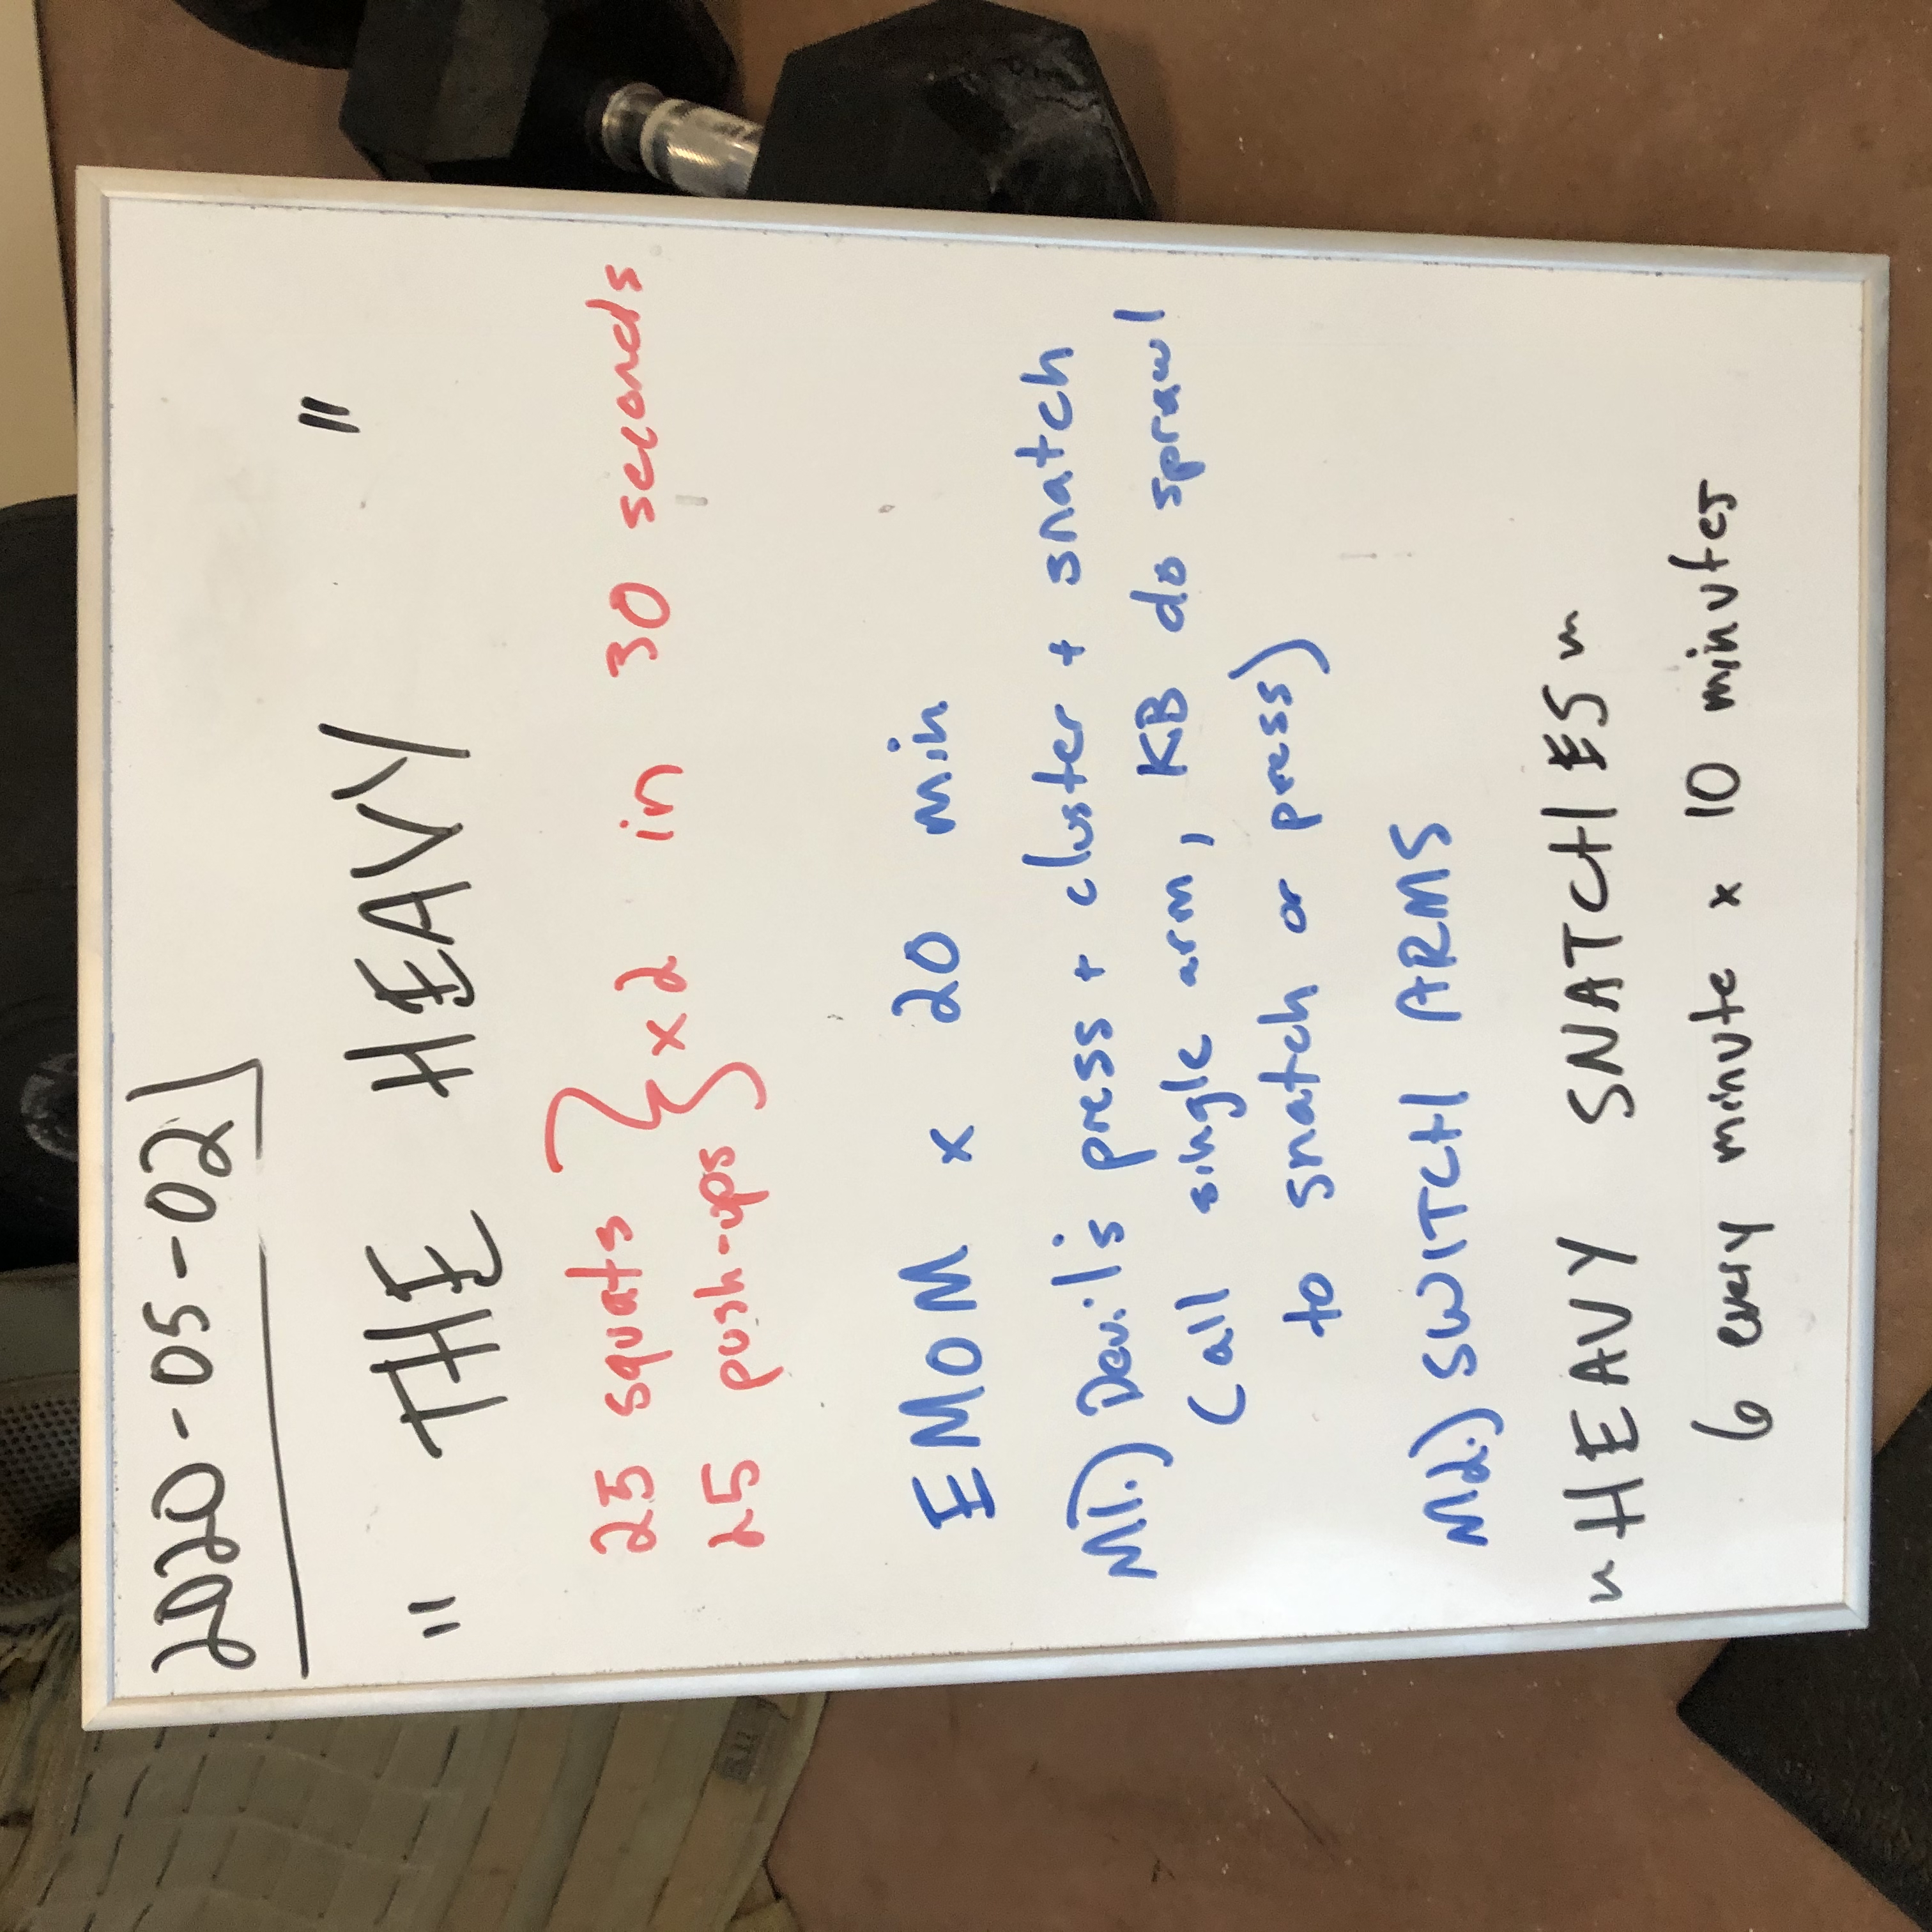 2020-05-02
" THE HEAVY "
25 squats
25 push-ups } x2 in 30 seconds
EMOM x 20 min
M1.) Devil's press + cluster + snatch
(all single arm, KB do sprawl
to snatch or press)
M2.) SWITCH ARMS
"HEAVY SNATCHES"
6 every minute x 10 minutes